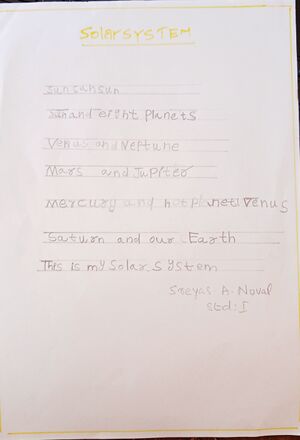 SolarSYSTEM
sunsunsun
sun and eight Planets
Venus and Neptune
Mars and Jupiter
mercury and hot planet Venus
Saturn and our Earth
This is my Solar System
Sreyas. A. Noval
Std: I